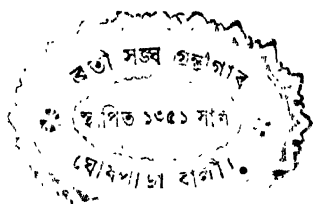 ব্রতী সঙ্ঘ গ্রন্থাগার
স্থাপিত ১৩৫১ সাল
ঘোষপাড়া বালী